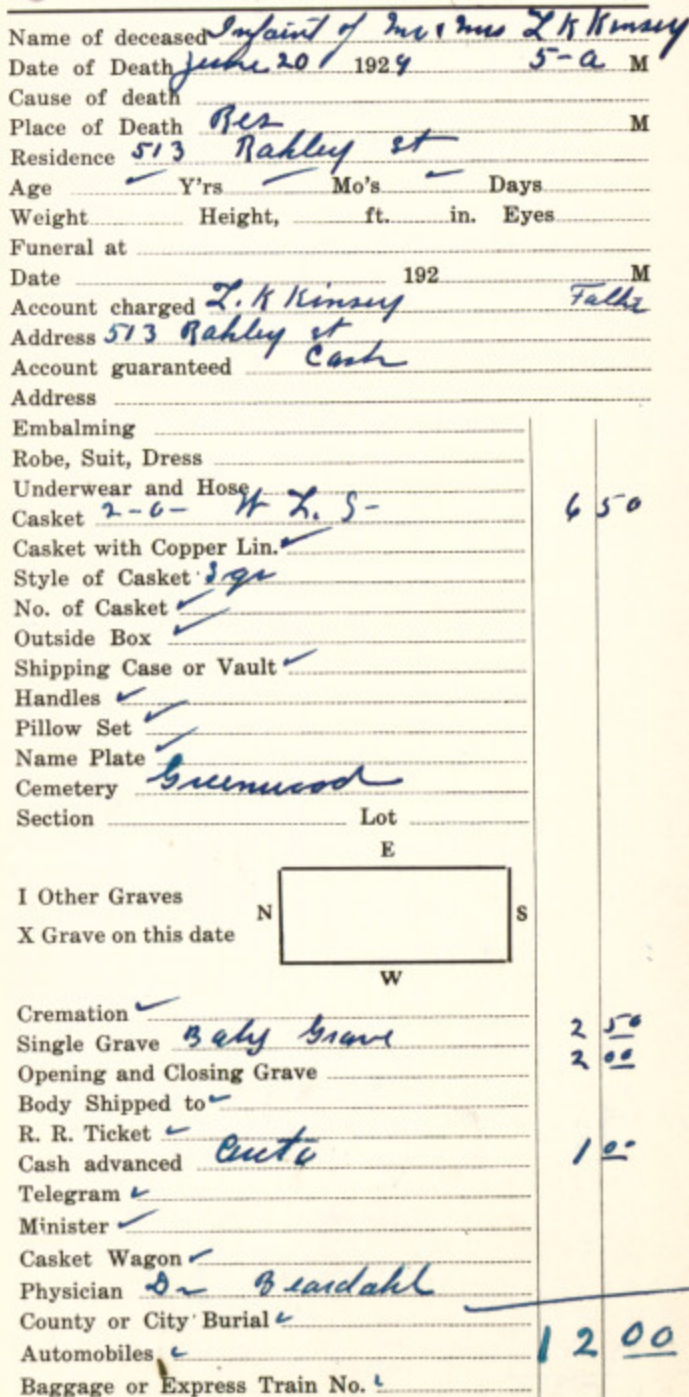 Name of deceased Infaint of Mr & Mrs L K Kinsey
Date of Death June 20 1924 5-a M
Cause of death
Place of Death Res M
Residence 513 Rahley st
Age ✓ Y'rs ✓ Mo's ✓ Days
Weight Height, ft. in. Eyes
Funeral at
Date 192 M
Account charged L. K Kinsey
Address 513 Rahley st
Account guaranteed Cash
Address
Embalming
Robe, Suit, Dress
Underwear and Hose
Casket 2-0- W L. S- 6 50
Casket with Copper Lin. ✓
Style of Casket Sqr
No. of Casket ✓
Outside Box ✓
Shipping Case or Vault ✓
Handles ✓
Pillow Set ✓
Name Plate ✓
Cemetery Greenwood
Section Lot
E
I Other Graves
N S
X Grave on this date
W
Cremation ✓
Single Grave Baby Grave 2 50
Opening and Closing Grave 2 00
Body Shipped to ✓
R. R. Ticket ✓
Cash advanced Auto 1 00
Telegram ✓
Minister ✓
Casket Wagon ✓
Physician Dr Beardahl
County or City Burial ✓
Automobiles ✓ 12 00
Baggage or Express Train No. ✓